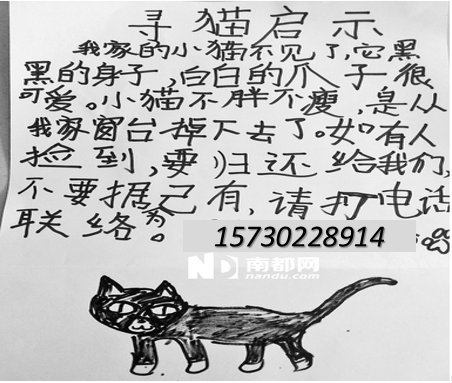 寻猫启示
我家的小猫不见了,它黑
黑的身子,白白的爪子很
可爱。小猫不胖不瘦,是从
我家窗台掉下去了。如有人
捡到,要归还给我们,
不要据为己有,请打电话
联络。
15730228914
ND 南都网
nandu.com